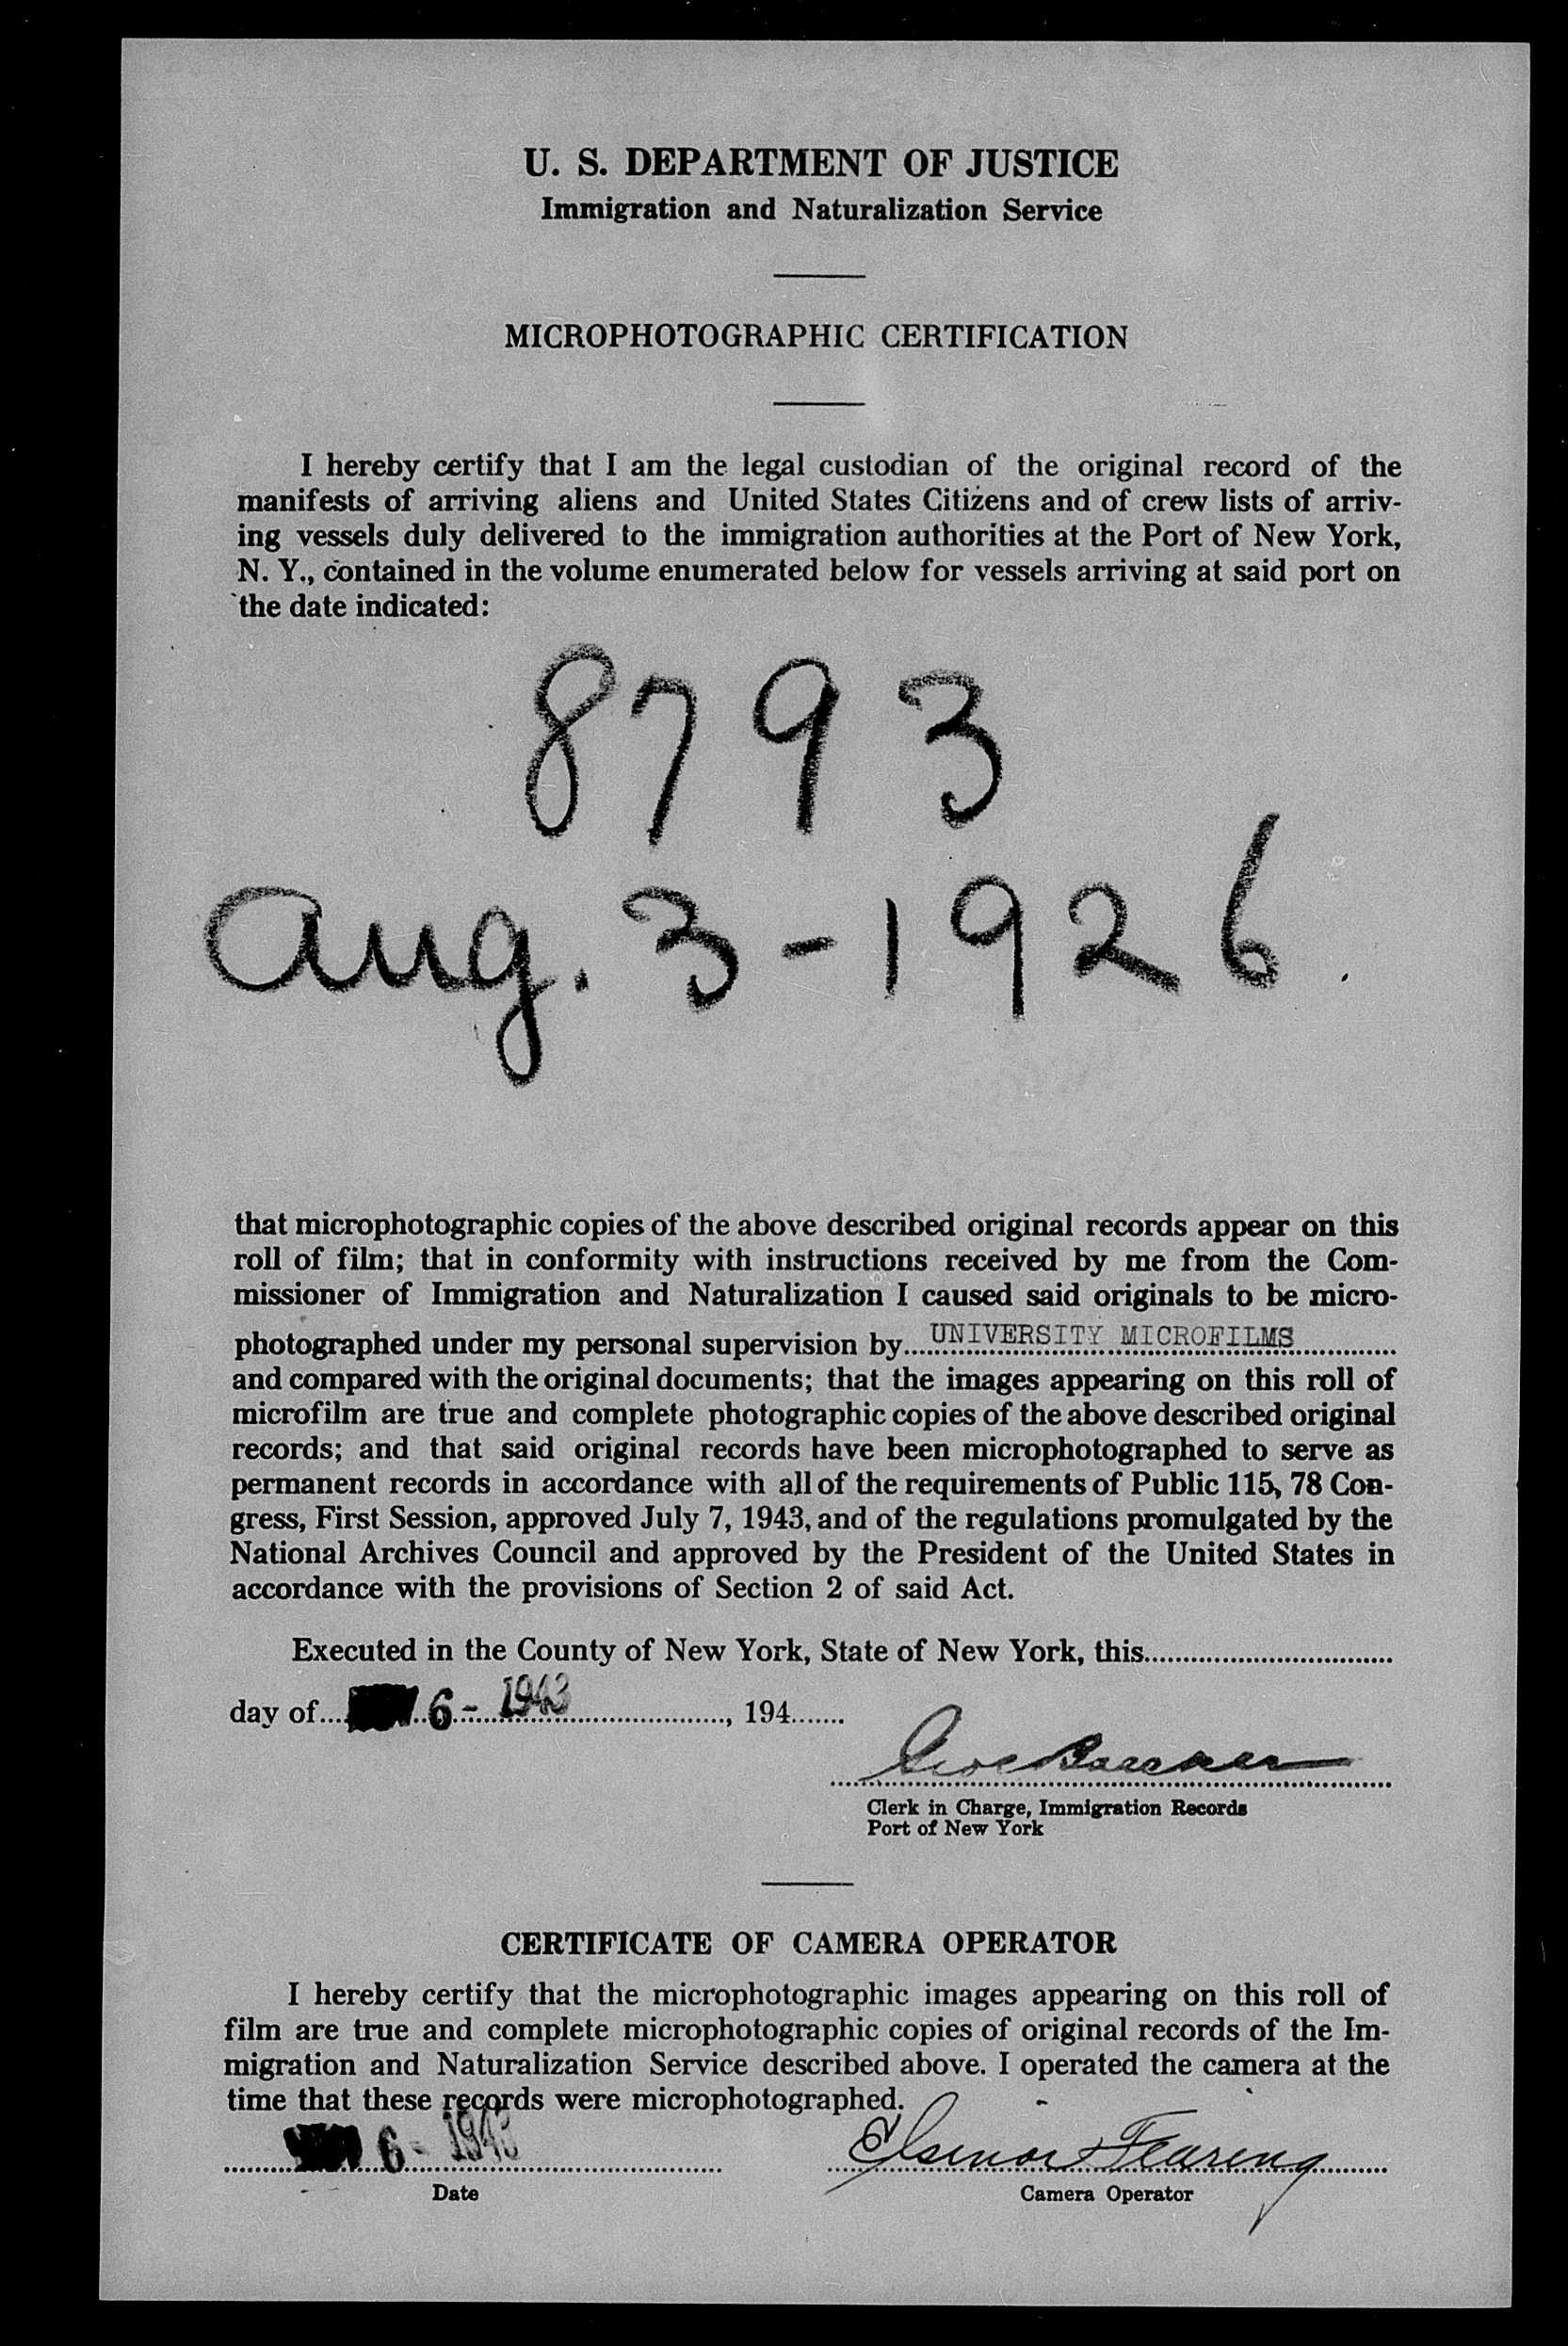 U. S. DEPARTMENT OF JUSTICE
Immigration and Naturalization Service
MICROPHOTOGRAPHIC CERTIFICATION
I hereby certify that I am the legal custodian of the original record of the
manifests of arriving aliens and United States Citizens and of crew lists of arriv-
ing vessels duly delivered to the immigration authorities at the Port of New York,
N. Y., contained in the volume enumerated below for vessels arriving at said port on
the date indicated:
8793
Aug. 3-1926.
that microphotographic copies of the above described original records appear on this
roll of film; that in conformity with instructions received by me from the Com-
missioner of Immigration and Naturalization I caused said originals to be micro-
photographed under my personal supervision by UNIVERSITY MICROFILMS
and compared with the original documents; that the images appearing on this roll of
microfilm are true and complete photographic copies of the above described original
records; and that said original records have been microphotographed to serve as
permanent records in accordance with all of the requirements of Public 115, 78 Con-
gress, First Session, approved July 7, 1943, and of the regulations promulgated by the
National Archives Council and approved by the President of the United States in
accordance with the provisions of Section 2 of said Act.
Executed in the County of New York, State of New York, this
day of 6 - 1943, 194
Clerk in Charge, Immigration Records
Port of New York
CERTIFICATE OF CAMERA OPERATOR
I hereby certify that the microphotographic images appearing on this roll of
film are true and complete microphotographic copies of original records of the Im-
migration and Naturalization Service described above. I operated the camera at the
time that these records were microphotographed.
6 - 1943 Fearing
Date Camera Operator